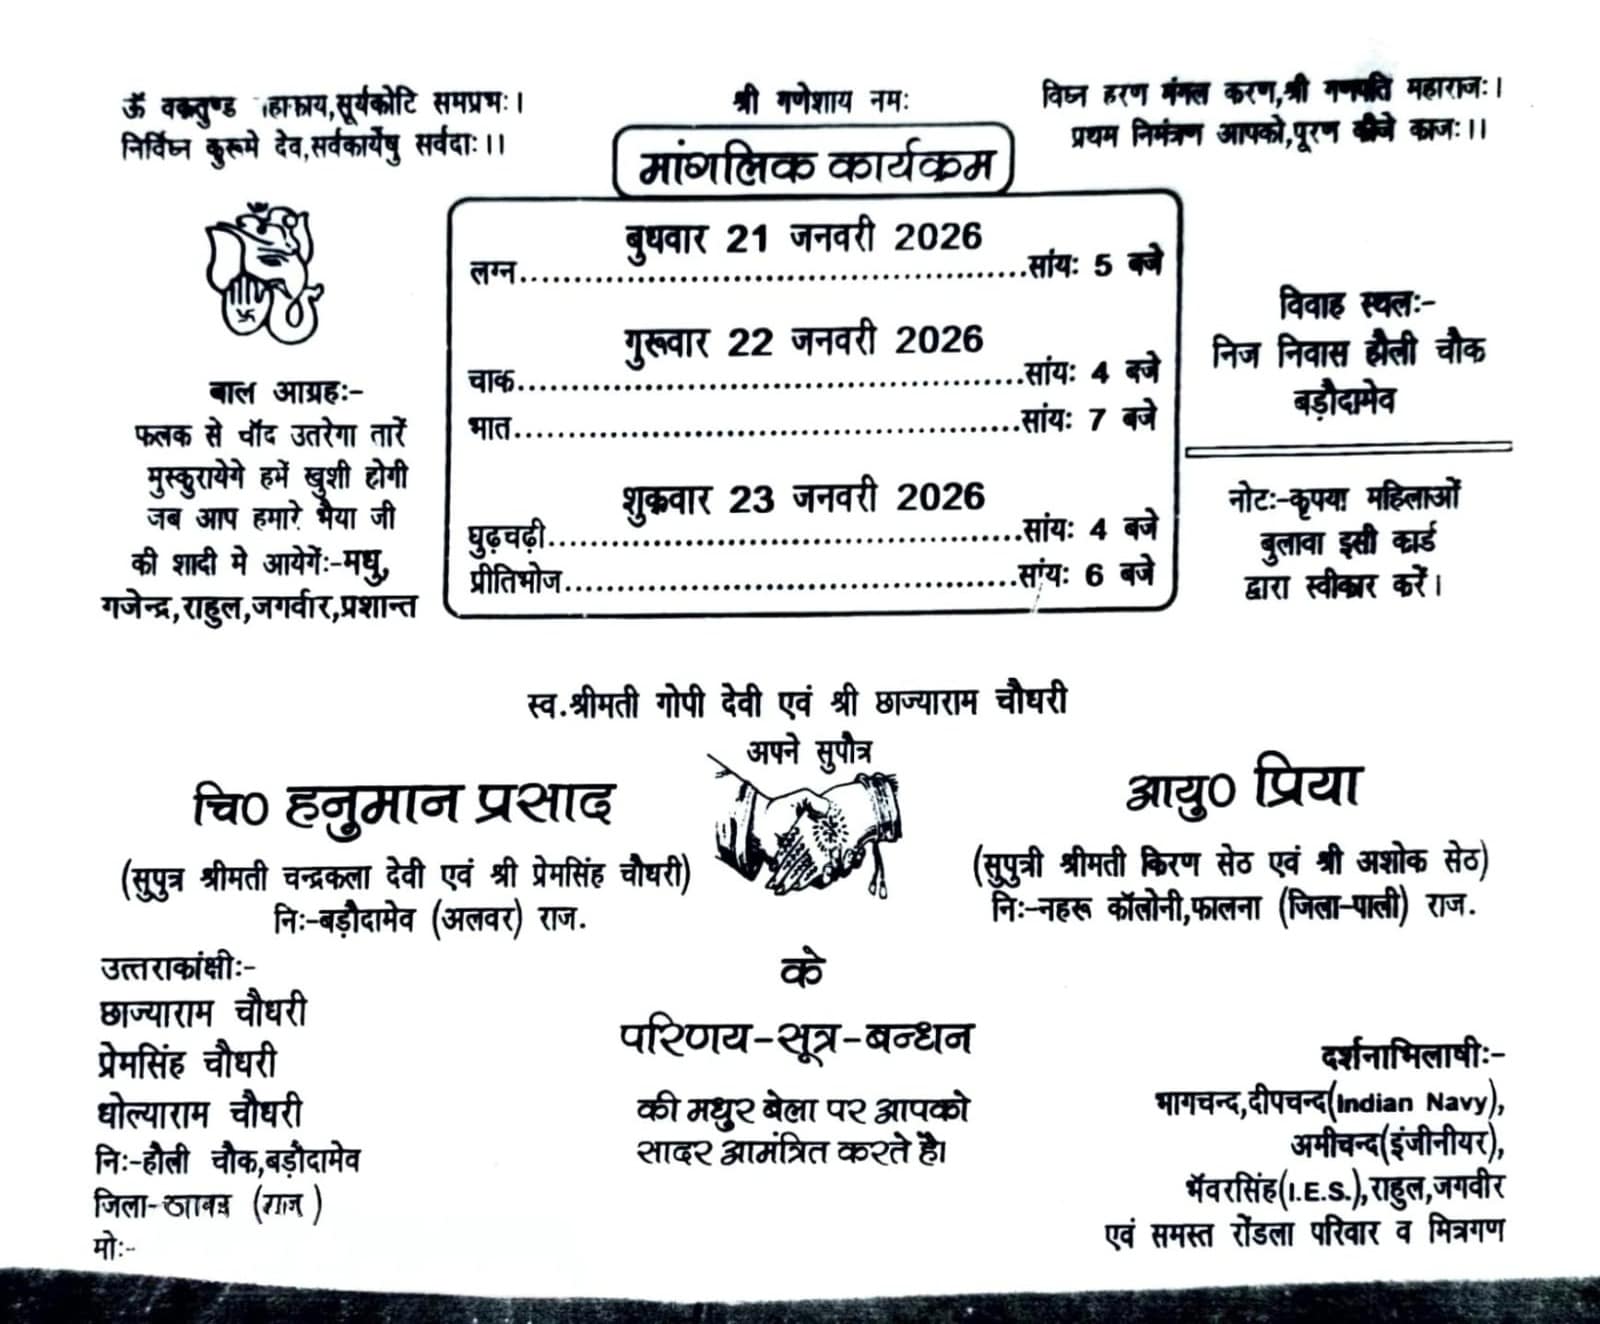 ॐ वक्रतुण्ड हाकाय,सूर्यकोटि समप्रभः।
निर्विघ्न कुरूमे देव,सर्वकार्येषु सर्वदाः।।
श्री गणेशाय नमः
विघ्न हरण मंगल करण,श्री गणपति महाराजः।
प्रथम निमंत्रण आपको,पूरण कीजे काजः।।
मांगलिक कार्यक्रम
बुधवार 21 जनवरी 2026
लग्न.................................................सांयः 5 बजे
गुरूवार 22 जनवरी 2026
चाक.................................................सांयः 4 बजे
भात.................................................सांयः 7 बजे
शुक्रवार 23 जनवरी 2026
घुढ़चढ़ी.............................................सांयः 4 बजे
प्रीतिभोज...........................................सांयः 6 बजे
बाल आग्रहः-
फलक से चॉद उतरेगा तारें
मुस्कुरायेगे हमें खुशी होगी
जब आप हमारे भैया जी
की शादी मे आयेगें:-मधु,
गजेन्द्र,राहुल,जगवीर,प्रशान्त
विवाह स्थलः-
निज निवास हौली चौक
बड़ौदामेव
नोटः-कृपया महिलाओं
बुलावा इसी कार्ड
द्वारा स्वीकार करें।
स्व.श्रीमती गोपी देवी एवं श्री छाज्याराम चौधरी
अपने सुपौत्र
चि0 हनुमान प्रसाद
(सुपुत्र श्रीमती चन्द्रकला देवी एवं श्री प्रेमसिंह चौधरी)
निः-बड़ौदामेव (अलवर) राज.
आयु0 प्रिया
(सुपुत्री श्रीमती किरण सेठ एवं श्री अशोक सेठ)
निः-नहरू कॉलोनी,फालना (जिला-पाली) राज.
के
परिणय-सूत्र-बन्धन
की मधुर बेला पर आपको
सादर आमंत्रित करते है।
उत्तराकांक्षीः-
छाज्याराम चौधरी
प्रेमसिंह चौधरी
धोल्याराम चौधरी
निः-हौली चौक,बड़ौदामेव
जिला- (राज)
मोः-
दर्शनाभिलाषीः-
भागचन्द,दीपचन्द(Indian Navy),
अमीचन्द(इंजीनीयर),
भॅवरसिंह(I.E.S.),राहुल,जगवीर
एवं समस्त रोंडला परिवार व मित्रगण